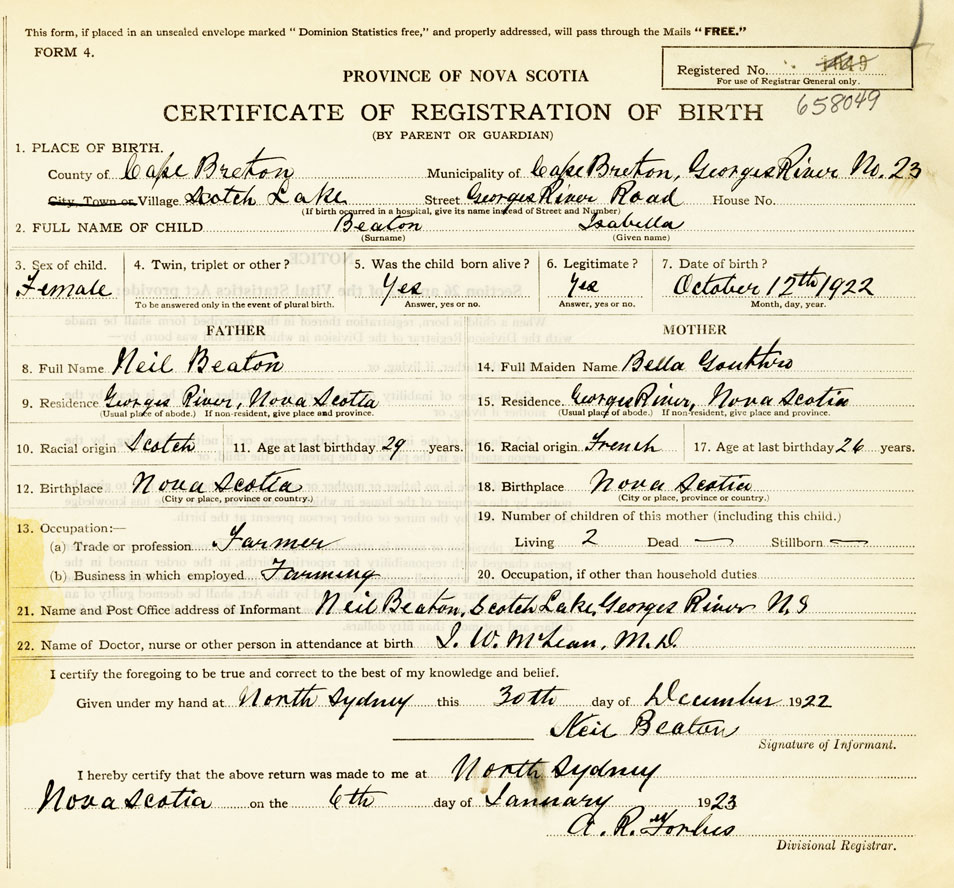 This form, if placed in an unsealed envelope marked "Dominion Statistics free," and properly addressed, will pass through the Mails "FREE."
FORM 4.
PROVINCE OF NOVA SCOTIA
Registered No.
For use of Registrar General only.
658049
CERTIFICATE OF REGISTRATION OF BIRTH
(BY PARENT OR GUARDIAN)
1. PLACE OF BIRTH.
County of Cape Breton Municipality of Cape Breton, Georges River No. 23
City, Town or Village Scotch Lake Street Georges River Road House No.
(If birth occurred in a hospital, give its name instead of Street and Number)
2. FULL NAME OF CHILD Beaton Isabella
(Surname) (Given name)
3. Sex of child. 4. Twin, triplet or other? 5. Was the child born alive? 6. Legitimate? 7. Date of birth?
Female Yes Yes October 12th 1922
To be answered only in the event of plural birth. Answer, yes or no. Answer, yes or no. Month, day, year.
FATHER MOTHER
8. Full Name Neil Beaton 14. Full Maiden Name Bella Gouthro
9. Residence Georges River, Nova Scotia 15. Residence Georges River, Nova Scotia
(Usual place of abode.) If non-resident, give place and province. (Usual place of abode.) If non-resident, give place and province.
10. Racial origin Scotch 11. Age at last birthday 29 years. 16. Racial origin French 17. Age at last birthday 26 years.
12. Birthplace Nova Scotia 18. Birthplace Nova Scotia
(City or place, province or country.) (City or place, province or country.)
13. Occupation:— 19. Number of children of this mother (including this child.)
(a) Trade or profession Farmer Living 2 Dead — Stillborn —
(b) Business in which employed Farming 20. Occupation, if other than household duties
21. Name and Post Office address of Informant Neil Beaton, Scotch Lake, Georges River N.S
22. Name of Doctor, nurse or other person in attendance at birth J. W. McLean, M.D.
I certify the foregoing to be true and correct to the best of my knowledge and belief.
Given under my hand at North Sydney this 30th day of December 1922
Neil Beaton
Signature of Informant.
I hereby certify that the above return was made to me at North Sydney
Nova Scotia on the 6th day of January 1923
A. R. Forbes
Divisional Registrar.